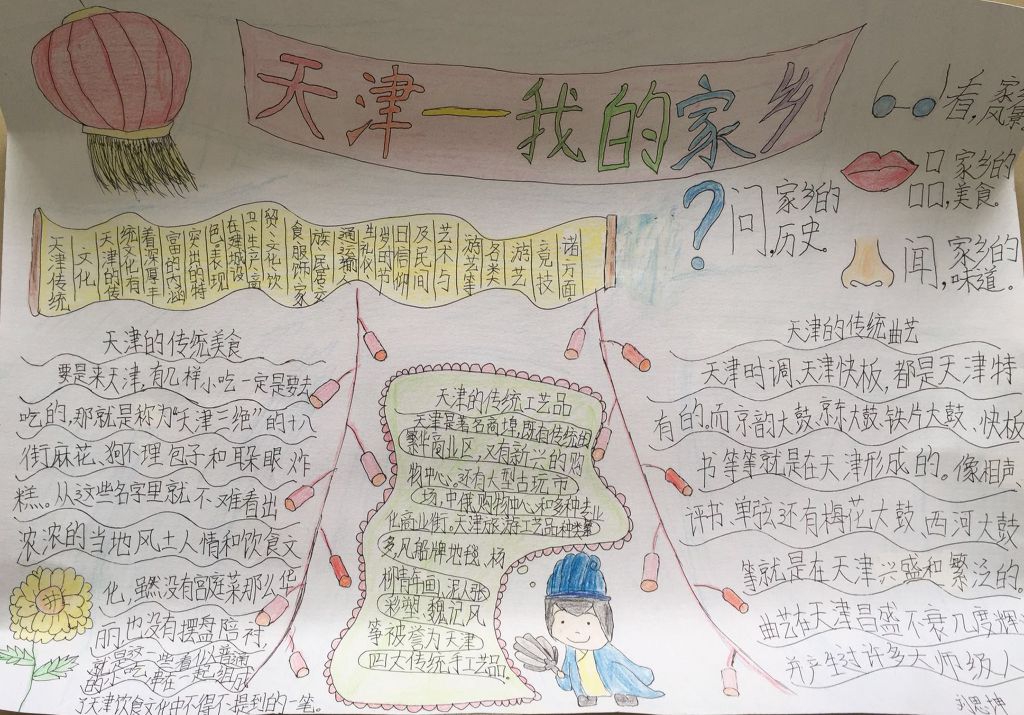 天津—我的家乡
看,家乡
风景
口 家乡的
口口,美食。
问 家乡的
历史。
闻,家乡的
味道。
天津传统
文化
天津的传
统文化有
着深厚丰
富的内涵
突出的特
色,表现
在建城设
卫、生产商
贸、文化饮
食服饰、家
族、居室交
通运输、人
生礼仪、
岁时节
日信仰
及民间
艺术与
游艺等
各类
游艺
竞技
诸方面。
天津的传统美食
要是来天津,有几样小吃一定是要去
吃的,那就是称为“天津三绝”的十八
街麻花、狗不理包子和耳朵眼炸
糕。从这些名字里就不难看出
浓浓的当地风土人情和饮食文
化,虽然没有宫庭菜那么华
丽也没有摆盘陪衬
就是这一些看似普通
的小吃串在一起组成
了天津饮食文化中不得不提到的一笔。
天津的传统工艺品
天津是著名商埠,既有传统的
繁华商业区,又有新兴的购
物中心,还有大型古玩市
场,中俄购物中心和多种专业
化商业街。天津旅游工艺品种类繁
多,风船牌地毯、杨
柳青年画,泥人张
彩塑、魏记风
等被誉为天津
四大传统手工艺品。
天津的传统曲艺
天津时调,天津快板,都是天津特
有的。而京韵大鼓,京东大鼓、铁片大鼓、快板
书等等就是在天津形成的。像相声、
评书、单弦还有梅花大鼓、西河大鼓
等就是在天津兴盛和繁泛的。
曲艺在天津昌盛不衰几度辉
并产生过许多大师级人